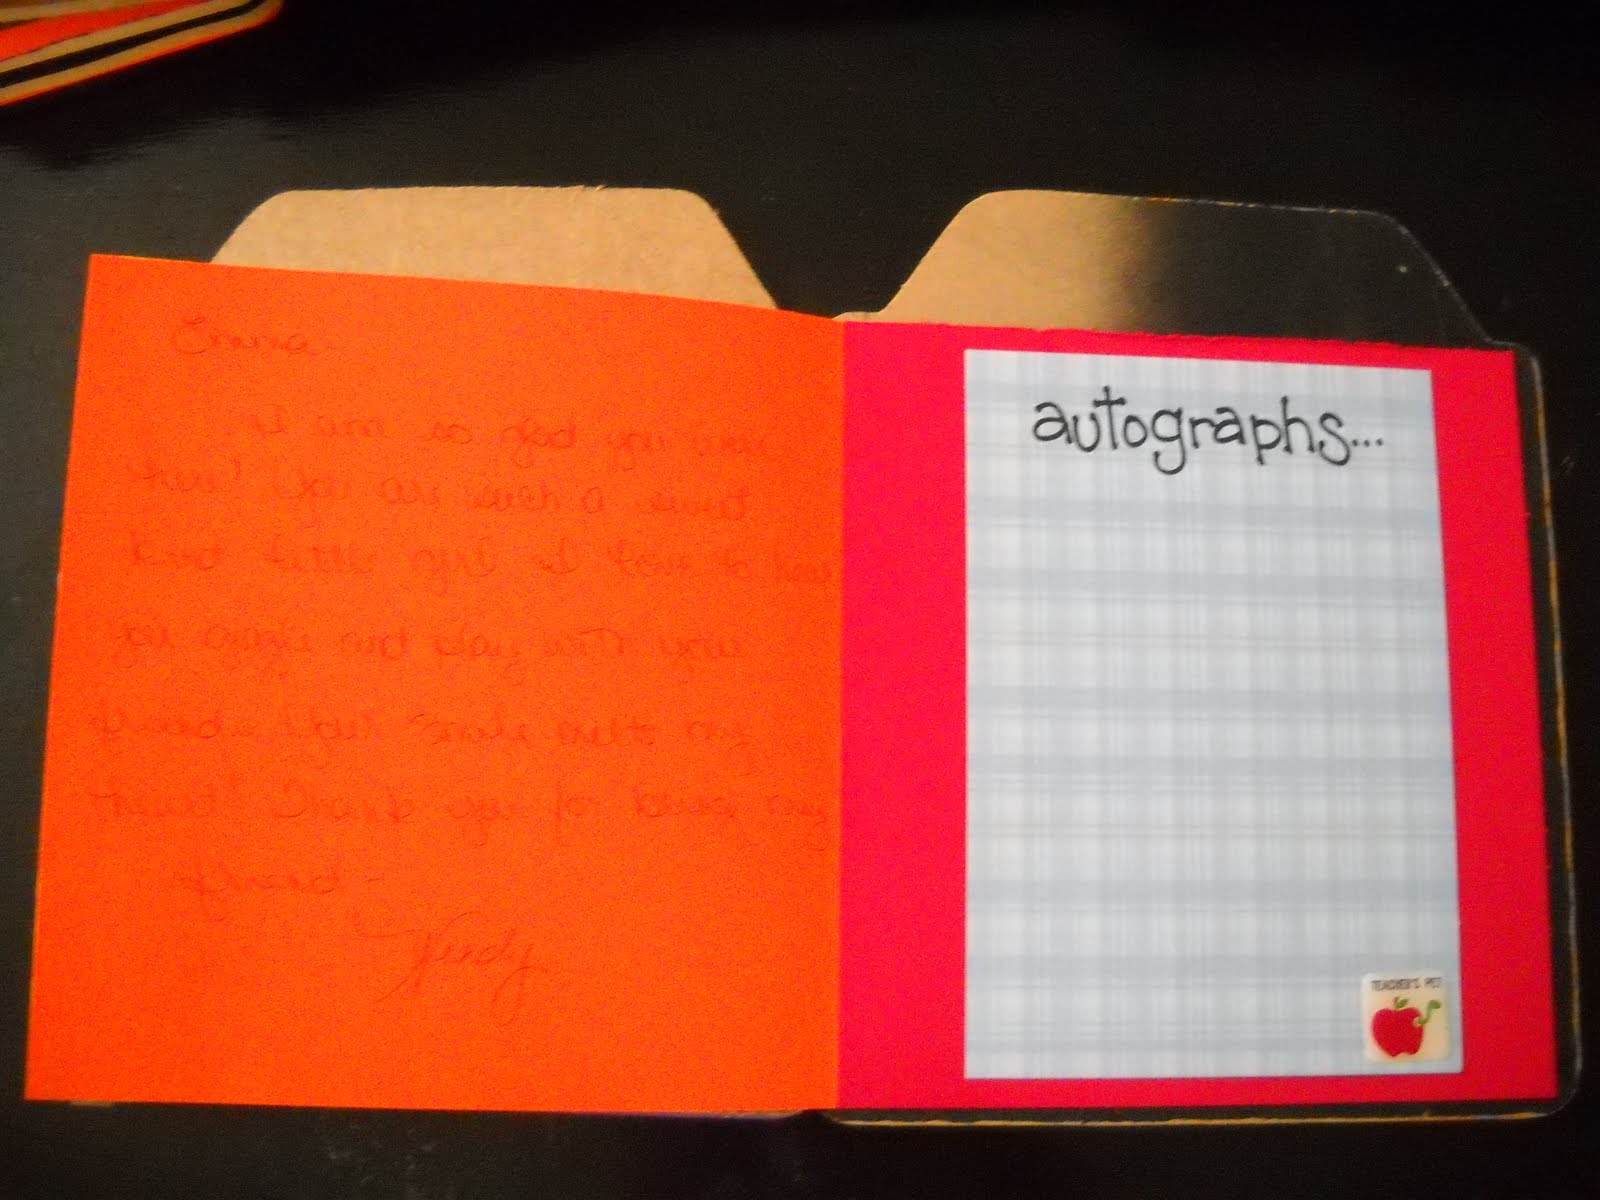 Emma
I am so glad you were
here! You are such a sweet
kind little girl I love to hear
you giggle and play with your
friends. Your smile melts my
heart! Thank you for being my
friend -
autographs...
TEACHER'S PET